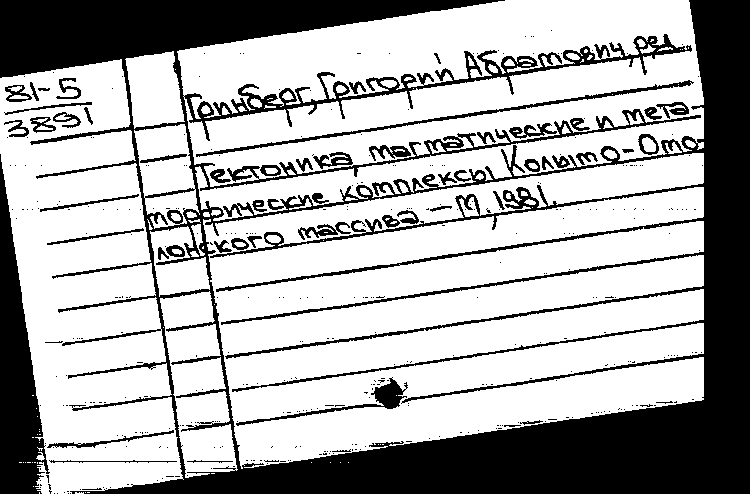 81-5
3891
Гринберг, Григорий Абрамович, ред.
Тектоника, магматические и мета-
морфические комплексы Колымо-Омо-
лонского массива. — М., 1981.